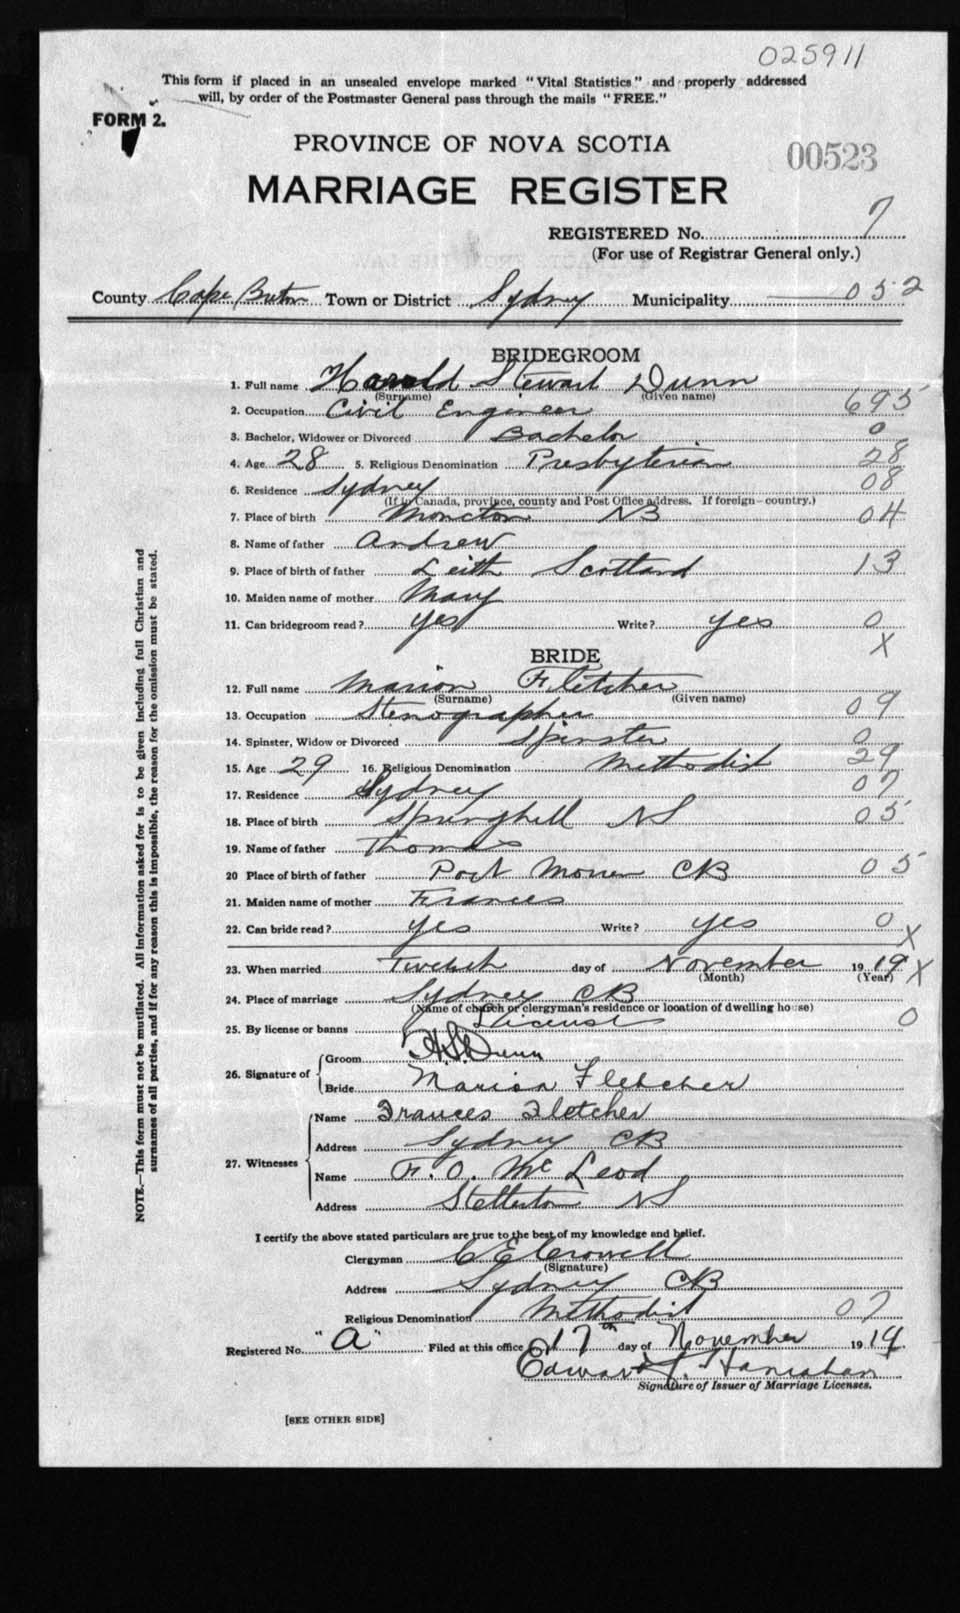 025911
This form if placed in an unsealed envelope marked "Vital Statistics" and properly addressed
will, by order of the Postmaster General pass through the mails "FREE."
FORM 2.
PROVINCE OF NOVA SCOTIA
00523
MARRIAGE REGISTER
REGISTERED No. 7
(For use of Registrar General only.)
County Cape Breton Town or District Sydney Municipality 052
BRIDEGROOM
1. Full name Harold Stewart Dunn
(Surname) (Given name)
2. Occupation Civil Engineer 695
3. Bachelor, Widower or Divorced Bachelor 0
4. Age 28 5. Religious Denomination Presbyterian 28
6. Residence Sydney 08
(If in Canada, province, county and Post Office address. If foreign—country.)
7. Place of birth Moncton NB 04
8. Name of father Andrew
9. Place of birth of father Leith Scotland 13
10. Maiden name of mother Mary
11. Can bridegroom read? yes Write? yes 0
X
BRIDE
12. Full name Marion Fletcher
(Surname) (Given name)
13. Occupation Stenographer 09
14. Spinster, Widow or Divorced Spinster 0
15. Age 29 16. Religious Denomination Methodist 29
17. Residence Sydney 07
18. Place of birth Springhill NS 05
19. Name of father Thomas
20 Place of birth of father Port Morien CB 05
21. Maiden name of mother Frances
22. Can bride read? yes Write? yes 0 X
23. When married Twelfth day of November 19 19 X
(Month) (Year)
24. Place of marriage Sydney CB
(Name of church or clergyman's residence or location of dwelling house)
25. By license or banns License 0
26. Signature of
Groom H.S. Dunn
Bride Marion Fletcher
27. Witnesses
Name Frances Fletcher
Address Sydney CB
Name F. O. McLeod
Address Stellarton NS
I certify the above stated particulars are true to the best of my knowledge and belief.
Clergyman C E Crowell
(Signature)
Address Sydney CB
Religious Denomination Methodist 07
Registered No. "A" Filed at this office 17th day of November 19 19
Edward J. Hanrahan
Signature of Issuer of Marriage Licenses.
[SEE OTHER SIDE]
NOTE.—This form must not be mutilated. All information asked for is to be given including full Christian and
surnames of all parties, and if for any reason this is impossible, the reason for the omission must be stated.